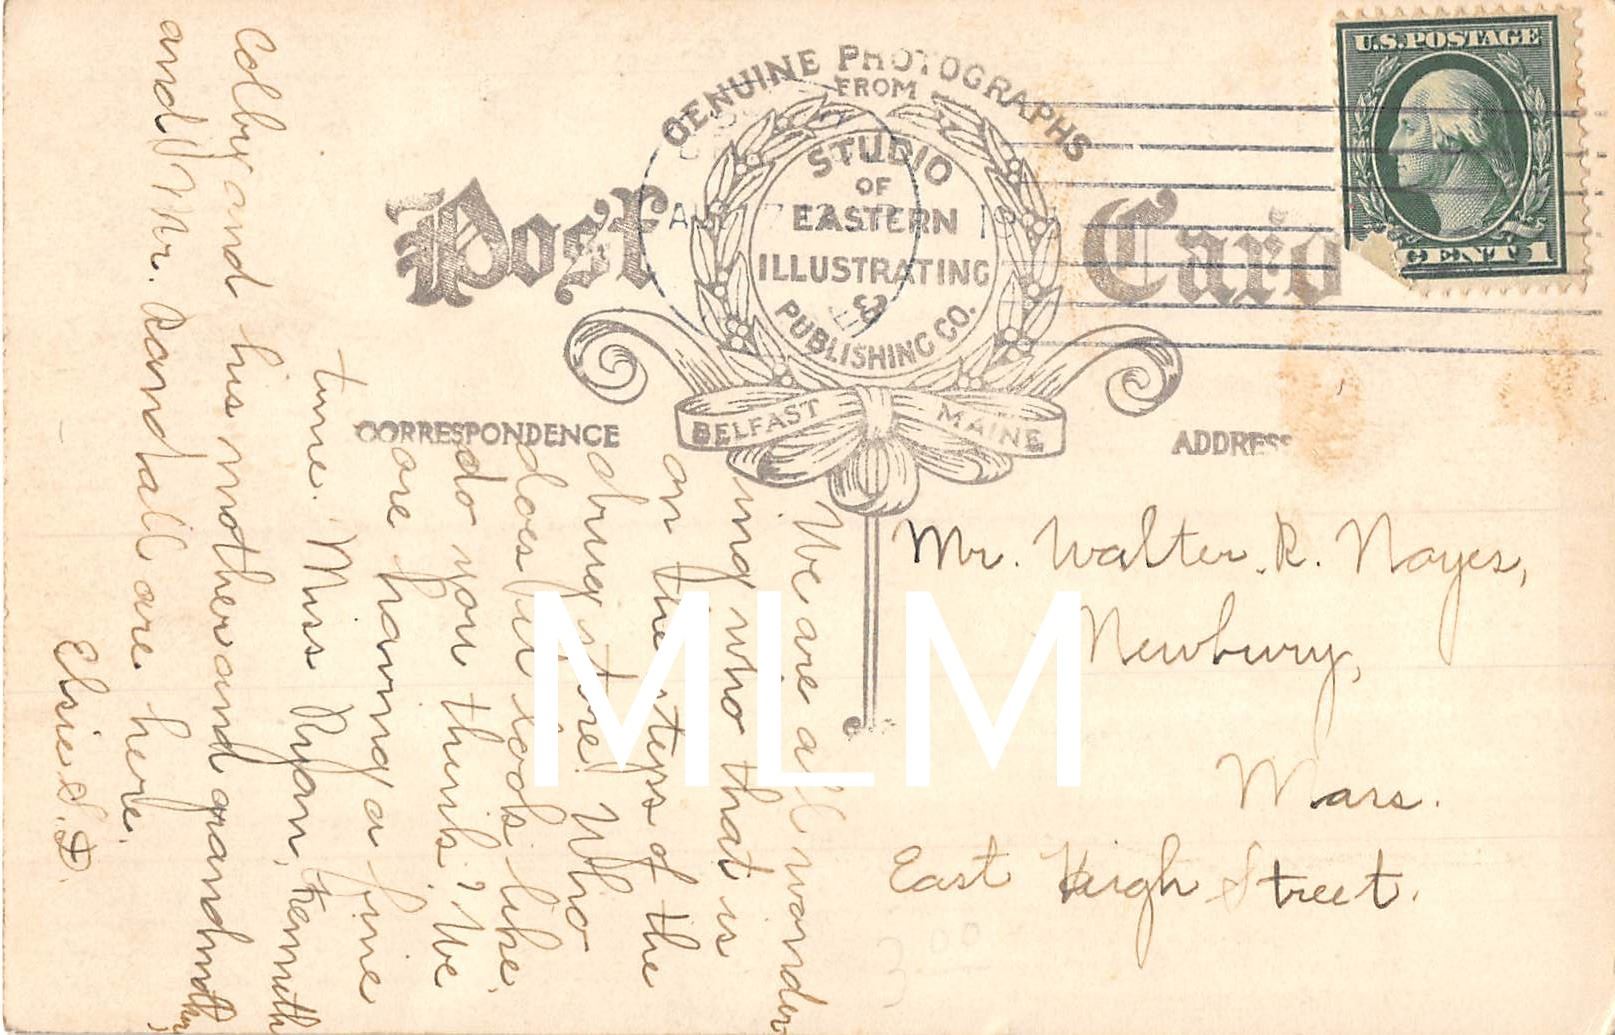 U.S.POSTAGE
CENT 1
GENUINE PHOTOGRAPHS
FROM
STUDIO
OF
EASTERN
ILLUSTRATING
&
PUBLISHING CO.
BELFAST MAINE
Post Card
CORRESPONDENCE
ADDRESS
We are all wonder
ing who that is
on the steps of the
drug store. Who
does he look like
do you think? We
are having a fine
time. Miss Ryan, Kennith
Colby and his mother and grandmother,
and Mr. Randall are here.
Elsie S. D.
Mr. Walter R. Noyes,
Newbury,
Mass.
East High Street.
3 00
MLM